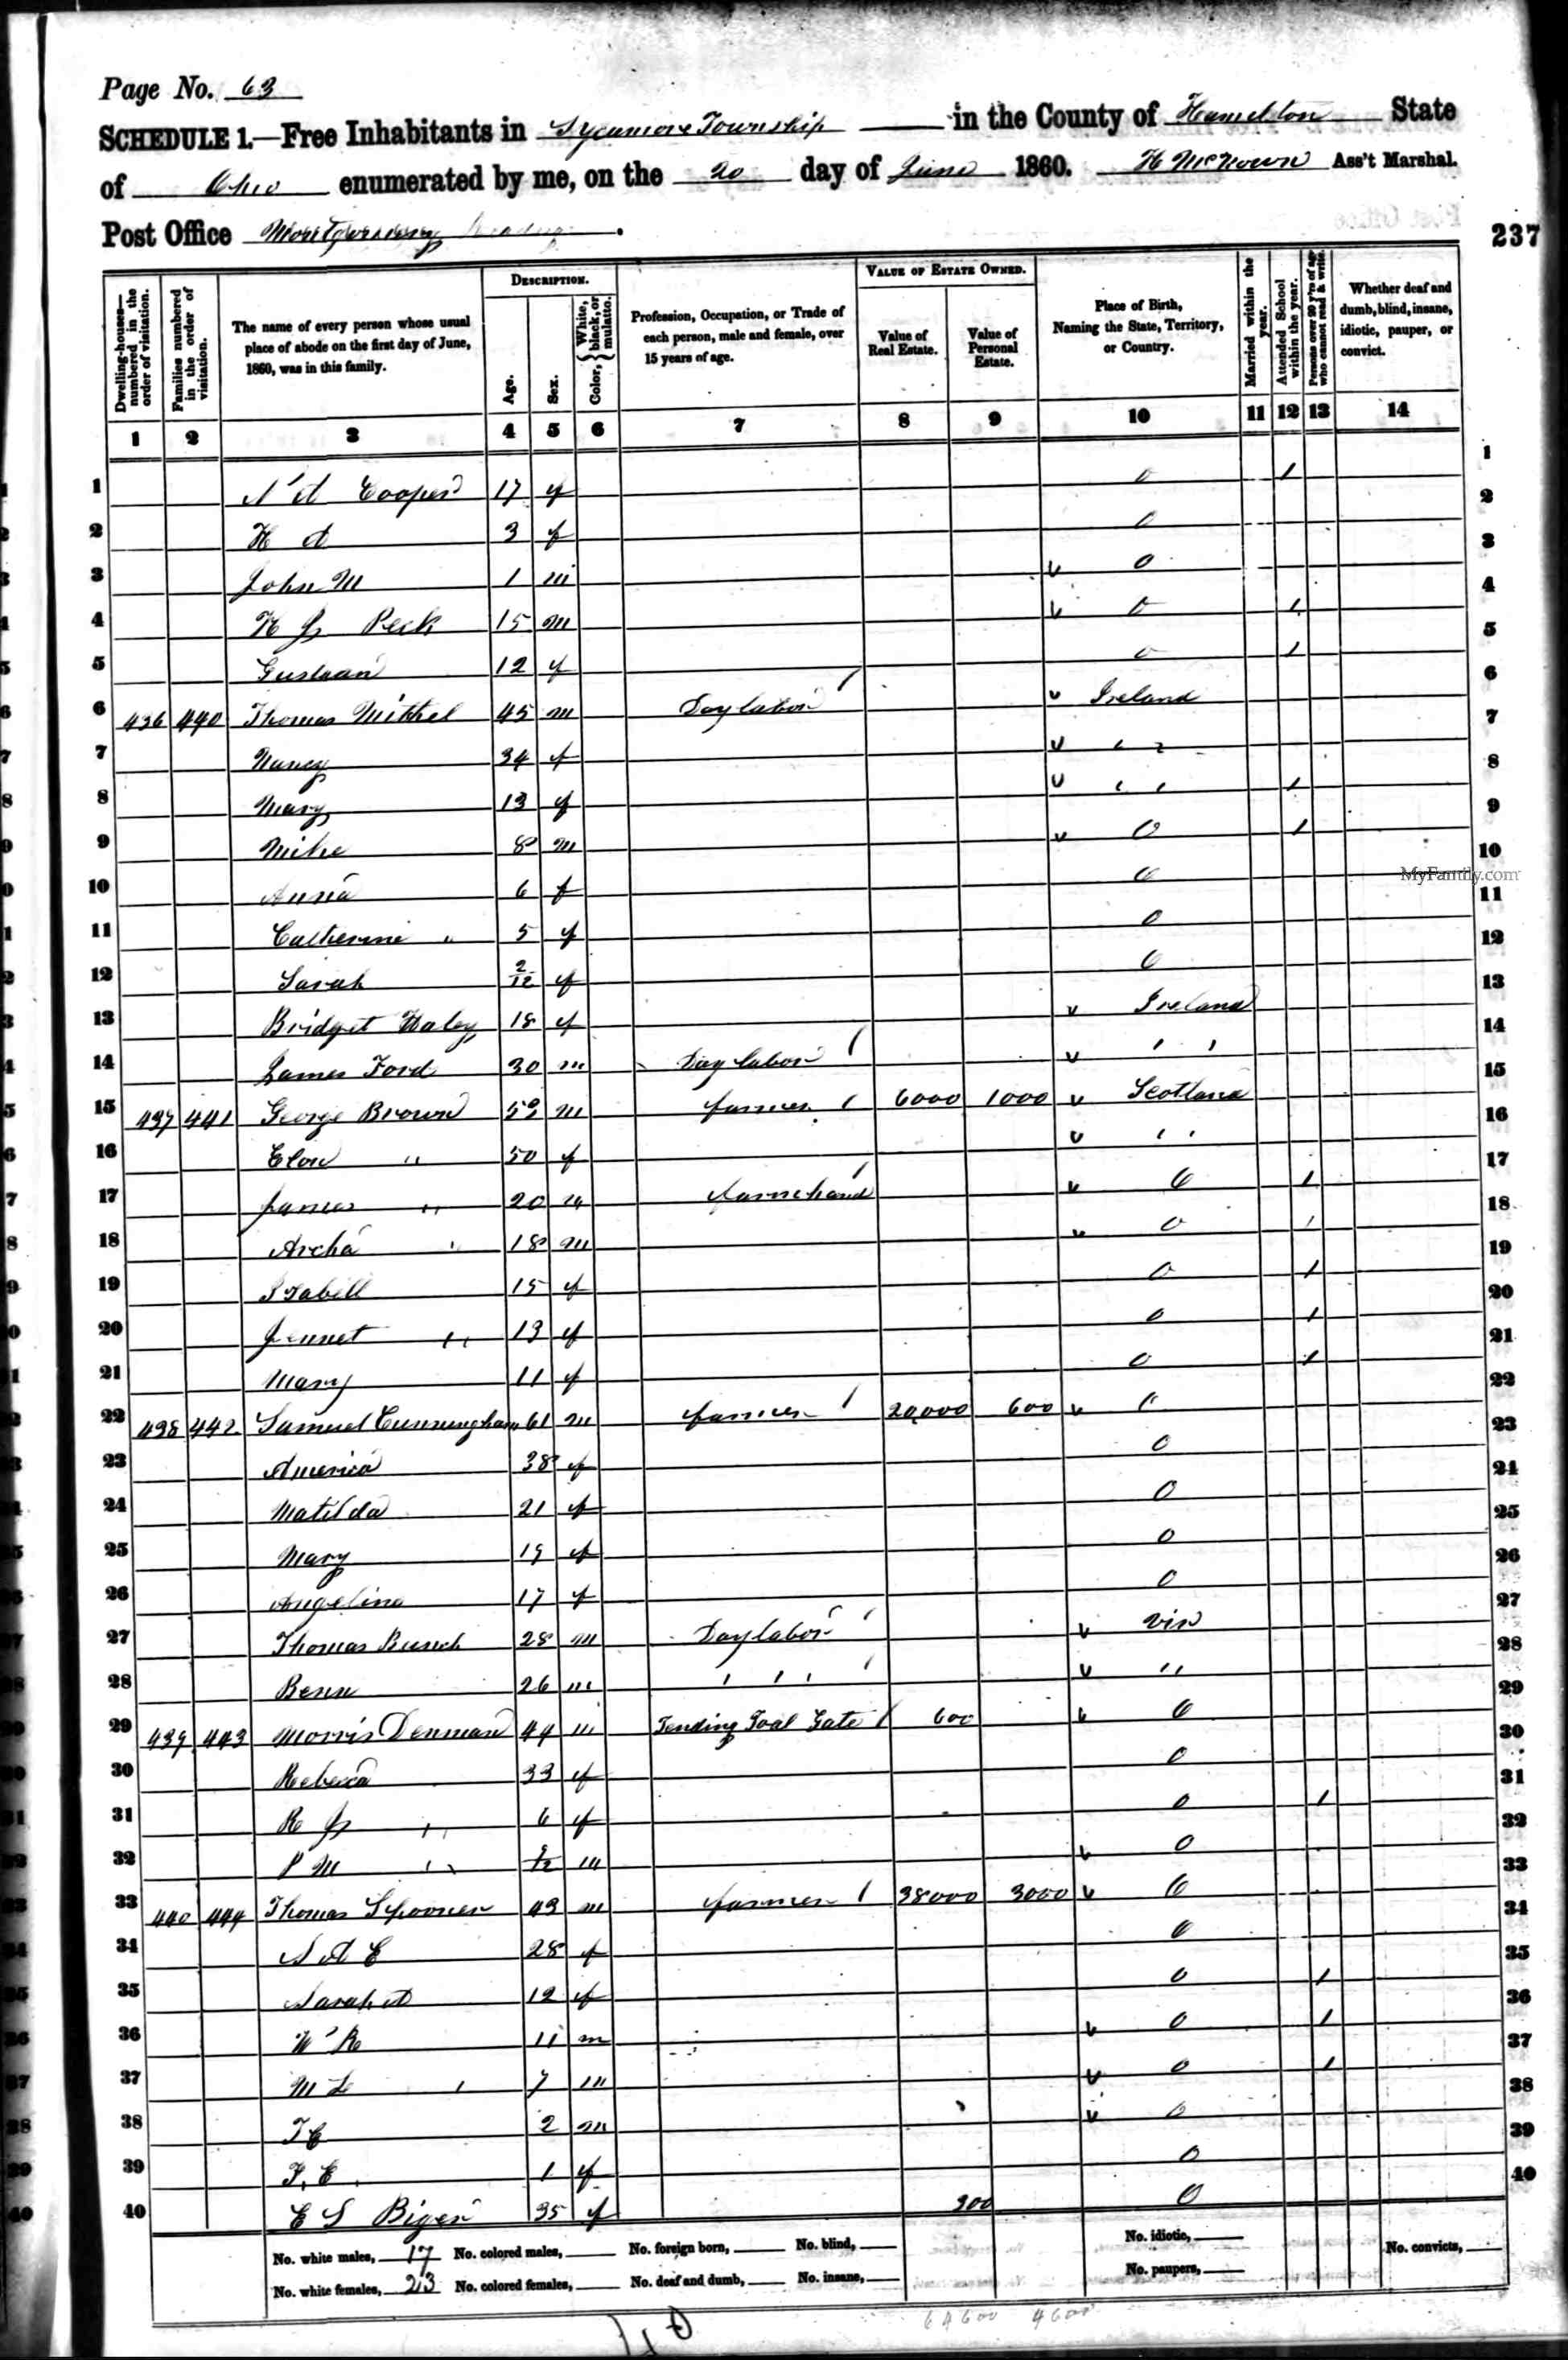 Page No. 63
SCHEDULE 1.—Free Inhabitants in Sycamore Township in the County of Hamelton State
of Ohio enumerated by me, on the 20 day of June 1860. H McKown Ass't Marshal.
Post Office Montgomery
237
Dwelling-houses—numbered in the order of visitation.
Families numbered in the order of visitation.
The name of every person whose usual place of abode on the first day of June, 1860, was in this family.
DESCRIPTION.
Age.
Sex.
Color, { White, black, or mulatto.
Profession, Occupation, or Trade of each person, male and female, over 15 years of age.
VALUE OF ESTATE OWNED.
Value of Real Estate.
Value of Personal Estate.
Place of Birth, Naming the State, Territory, or Country.
Married within the year.
Attended School within the year.
Persons over 20 y'rs of age who cannot read & write.
Whether deaf and dumb, blind, insane, idiotic, pauper, or convict.
1 2 3 4 5 6 7 8 9 10 11 12 13 14
1 Cooper 17 f O / 1
2 H A 3 f O 2
3 John M 1 m v O 3
4 H J Peck 15 m v O / 4
5 12 f O / 5
6 436 440 Thomas Mithel 45 m Day labor / v Ireland 6
7 Nancy 34 f v " 7
8 Mary 13 f v " / 8
9 Mike 8 m v O / 9
10 Anna 6 f O 10
11 Catherine " 5 f O 11
12 Sarah 2/12 f O 12
13 Bridget Haley 18 f v Ireland 13
14 James Ford 30 m Day labor / v " 14
15 437 441 George Brown m farmer / 6000 1000 v Scotland 15
16 Elon " 50 f v " 16
17 James " 20 m farm hand / v O / 17
18 Archa " 18 m v O / 18
19 Isabell 15 f O / 19
20 Jennet " 13 f O / 20
21 Mary 11 f O / 21
22 438 442 Samuel Cunningham 61 m farmer / 20,000 600 v O 22
23 America 38 f O 23
24 Matilda 21 f O 24
25 Mary 19 f O 25
26 Angeline 17 f O 26
27 Thomas Bunch 28 m Day labor / v Vir 27
28 Benn 26 m " / v " 28
29 439 443 Morris Denman 44 m Tending Toal Gate / 600 v O 29
30 Rebeca 33 f O 30
31 R J " 6 f O / 31
32 P M " m v O 32
33 440 444 Thomas Spooner 43 m farmer / 38000 3000 v O 33
34 28 f O 34
35 Sarah A 12 f O / 35
36 W R 11 m v O / 36
37 M L " 7 m v O / 37
38 T C 2 m v O 38
39 F. E. 1 f O 39
40 E S Biger 35 f 300 O 40
No. white males, 17 No. colored males, No. foreign born, No. blind, No. idiotic, No. convicts,
No. white females, 23 No. colored females, No. deaf and dumb, No. insane, No. paupers,
64600 4600
MyFamily.com